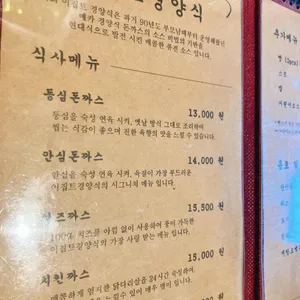 경양식
이집트 경양식은 과거 90년도 부모님께부터 운영해왔던
메카 경양식 돈까스의 소스 비법의 기반을
현대식으로 발전 시킨 매콤한 퓨전 소스 입니다.
식사메뉴
등심돈까스
13,000 원
등심을 숙성 연육 시켜, 옛날 방식 그대로 조리하여
씹는 식감이 좋으며 진한 육향의 맛을 느낄 수 있습니다.
안심돈까스
14,000 원
안심을 숙성 연육 시켜, 육질이 가장 부드러운
이집트경양식의 시그니처 메뉴 입니다.
치즈까스
15,500 원
100% 치즈를 아낌 없이 사용하여 풍미 가득한
이집트경양식의 가장 사랑 받는 메뉴 입니다.
치킨까스
15,000 원
매콤하게 염지한 닭다리살을 24시간 숙성하여,
느낄수 있어 매우 별미 입니다.
추가메뉴
빵 (2pcs)
스프
밥